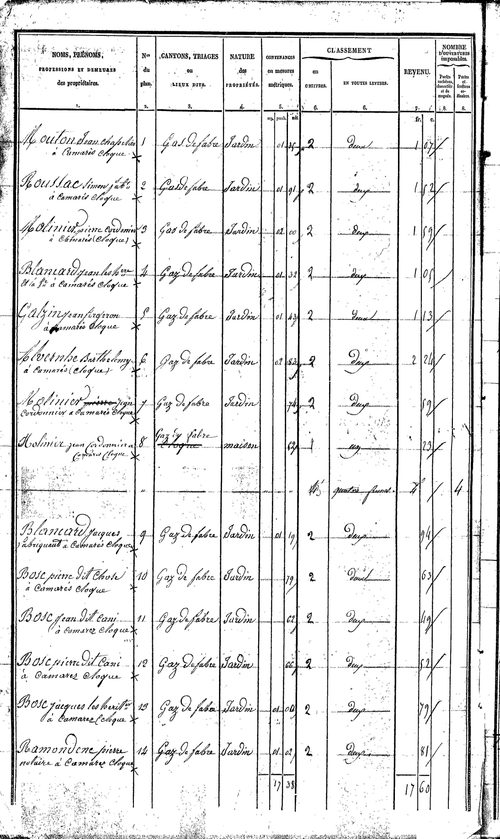 NOMS, PRÉNOMS, PROFESSIONS ET DEMEURES des propriétaires. | Nos du plan. | CANTONS, TRIAGES ou LIEUX DITS. | NATURE des PROPRIÉTÉS. | CONTENANCES en mesures métriques. | CLASSEMENT en CHIFFRES. | EN TOUTES LETTRES. | REVENU. | NOMBRE D'OUVERTURES imposables.
1. 2. 3. 4. 5. 6. 6. 7. 8. 8.
Mouton Jean chapelier 1 Gas de fabre Jardin 01 2 deux 1 07
à Camarès Cloque
Roussac Simon 2 Gas de fabre Jardin 01 91 2 deux 1 52
à Camarès Cloque
Molinier pierre Cordonnier 3 Gas de fabre Jardin 02 00 2 deux 1 59
à Camarès (Cloque)
Blancard jean les hers 4 Gaz de fabre Jardin 01 32 2 deux 1 05
à Camarès Cloque
Galzin jean forgeron 5 Gaz de fabre Jardin 01 43 2 deux 1 13
à Camarès Cloque
Alvernhe Barthelemy 6 Gaz de fabre Jardin 02 83 2 Deux 2 24
à Camarès (Cloque)
Molinier pierre jean 7 Gaz de fabre Jardin 74 2 Deux 59
Cordonnier à Camarès Cloque
Molinier jean Cordonnier à 8 Gaz de fabre Cloque maison 62 1 un 23
Camarès Cloque
" 4 4
Blancard Jacques 9 Gaz de fabre Jardin 01 19 2 deux 94
fabriquant à Camarès Cloque
Bosc pierre dit Chose 10 Gaz de fabre Jardin 79 2 deux 63
à Camarès Cloque
Bosc jean dit Cani 11 Gaz de fabre Jardin 62 2 deux 49
à Camarez Cloque
Bosc pierre dit Cani 12 Gaz de fabre Jardin 66 2 deux 52
à Camarez Cloque
Bosc jacques les herit. 13 Gaz de fabre Jardin 01 00 2 deux 79
à Camarez Cloque
Ramondenc pierre 14 Gaz de fabre Jardin 01 02 2 deux 81
notaire à Camarez Cloque
17 38 17 60